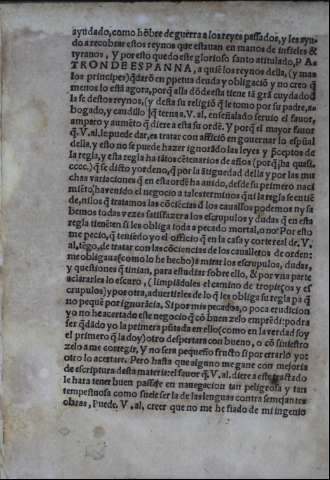 ayudado, como hõbre de guerra a los reyes passados, y les ayu-
do a recobrar estos reynos que estauan en manos de infieles &
tyranos, Y por esto quedo este glorioso santo atitulado, P A-
TRON DE ESPANNA, a quiẽ los reynos della, (y mas
los principes) q̃darõ en ꝑpetua deuda y obligaciõ y no creo q̃
menos lo está agora, porq̃ allẽ dõde esta tiene tã grã cuydado
la fe destos reynos, (y desta su religiõ q̃ le tomo por su padre, a-
bogado, y caudillo)
amparo y aumẽto q̃ diere a esta su ordẽ. Y porq̃ el mayor fauor
q̃. V. al. le puede dar, es tratar con afficiõ en gouernar lo espũal
della, y esto no se puede hazer ignorãdo las leyes y ꝑceptos de
la regla, y esta regla ha tãtos cẽtenarios de años (por q̃ ha ques.
cccc.) q̃ se dicto y ordeno, q̃ por la ãtiguedad della y por las mu
chas variaciones q̃ en esta ordẽ ha auido, desde su primero naci
miẽto, ha venido el negocio a tales terminos q̃ si la regla se entiẽ
de, ni los q̃ tratamos las cõciẽcias d̃ los caualls̃os podemos ny sa
bemos todas vezes satisfazer a los escrupulos y dudas q̃ en esta
regla tienẽ: si les obliga toda a pecado mortal, o no: Por esto
me pecio, q̃ teniẽdo yo el officio q̃ en la casa y corte real de, V.
al, tẽgo, de tratar con las cõciencias de los caualleros de orden:
me obligaua (como lo he hecho) a mirar los escrupulos, dudas,
y questiones q̃ tiniãn, para estudiar sobre ello, & por vna parte
aclararles lo escuro, (limpiãdoles el camino de tropieços y es
crupulos) y por otra, aduertirles de lo q̃ les obliga su regla pa q̃
no pequẽ por ignorãcia. Si por mis pecados, o poca erudicion
y no he acertado este negocio q̃ cõ buen zelo emprẽdi: podra
ser q̃ dãdo yo la primera pũtada en ello (como en la verdad soy
el primero q̃ la doy) otro despertara con bueno, o cõ siniestro
zelo a me corregir, Y no sera pequeño fructo si por errarlo yo:
otro lo acertare. Pero hasta que alguno me gane con mejoria
de escriptura desta materia: el fauor q̃. V. al. diere a este tractado
le hara tener buen passaje en nauegacion tan peligrosa y tan
tempestuosa como suele ser la de las lenguas contra semejantes
obras, Puede. V. al, creer que no me he fiado de mi ingenio